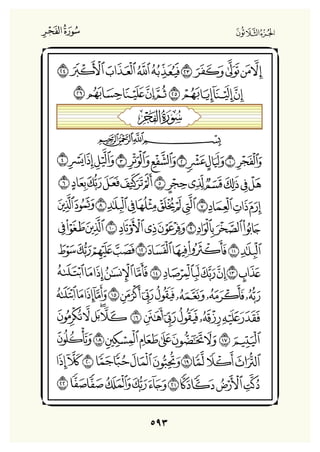 الجُزْءُ الثَّلَاثُونَ
سُورَةُ الْفَجْرِ
إِلَّا مَن تَوَلَّىٰ وَكَفَرَ ٢٣ فَيُعَذِّبُهُ ٱللَّهُ ٱلْعَذَابَ ٱلْأَكْبَرَ ٢٤
إِنَّ إِلَيْنَآ إِيَابَهُمْ ٢٥ ثُمَّ إِنَّ عَلَيْنَا حِسَابَهُم ٢٦
سُورَةُ الْفَجْرِ
بِسْمِ ٱللَّهِ ٱلرَّحْمَٰنِ ٱلرَّحِيمِ
وَٱلْفَجْرِ ١ وَلَيَالٍ عَشْرٍ ٢ وَٱلشَّفْعِ وَٱلْوَتْرِ ٣ وَٱلَّيْلِ إِذَا يَسْرِ ٤
هَلْ فِى ذَٰلِكَ قَسَمٌ لِّذِى حِجْرٍ ٥ أَلَمْ تَرَ كَيْفَ فَعَلَ رَبُّكَ بِعَادٍ ٦
إِرَمَ ذَاتِ ٱلْعِمَادِ ٧ ٱلَّتِى لَمْ يُخْلَقْ مِثْلُهَا فِى ٱلْبِلَٰدِ ٨ وَثَمُودَ ٱلَّذِينَ
جَابُوا۟ ٱلصَّخْرَ بِٱلْوَادِ ٩ وَفِرْعَوْنَ ذِى ٱلْأَوْتَادِ ١٠ ٱلَّذِينَ طَغَوْا۟ فِى
ٱلْبِلَٰدِ ١١ فَأَكْثَرُوا۟ فِيهَا ٱلْفَسَادَ ١٢ فَصَبَّ عَلَيْهِمْ رَبُّكَ سَوْطَ
عَذَابٍ ١٣ إِنَّ رَبَّكَ لَبِٱلْمِرْصَادِ ١٤ فَأَمَّا ٱلْإِنسَٰنُ إِذَا مَا ٱبْتَلَىٰهُ
رَبُّهُۥ فَأَكْرَمَهُۥ وَنَعَّمَهُۥ فَيَقُولُ رَبِّىٓ أَكْرَمَنِ ١٥ وَأَمَّآ إِذَا مَا ٱبْتَلَىٰهُ
فَقَدَرَ عَلَيْهِ رِزْقَهُۥ فَيَقُولُ رَبِّىٓ أَهَٰنَنِ ١٦ كَلَّا بَل لَّا تُكْرِمُونَ
ٱلْيَتِيمَ ١٧ وَلَا تَحَٰٓضُّونَ عَلَىٰ طَعَامِ ٱلْمِسْكِينِ ١٨ وَتَأْكُلُونَ
ٱلتُّرَاثَ أَكْلًا لَّمًّا ١٩ وَتُحِبُّونَ ٱلْمَالَ حُبًّا جَمًّا ٢٠ كَلَّآ إِذَا
دُكَّتِ ٱلْأَرْضُ دَكًّا دَكًّا ٢١ وَجَآءَ رَبُّكَ وَٱلْمَلَكُ صَفًّا صَفًّا ٢٢
٥٩٣